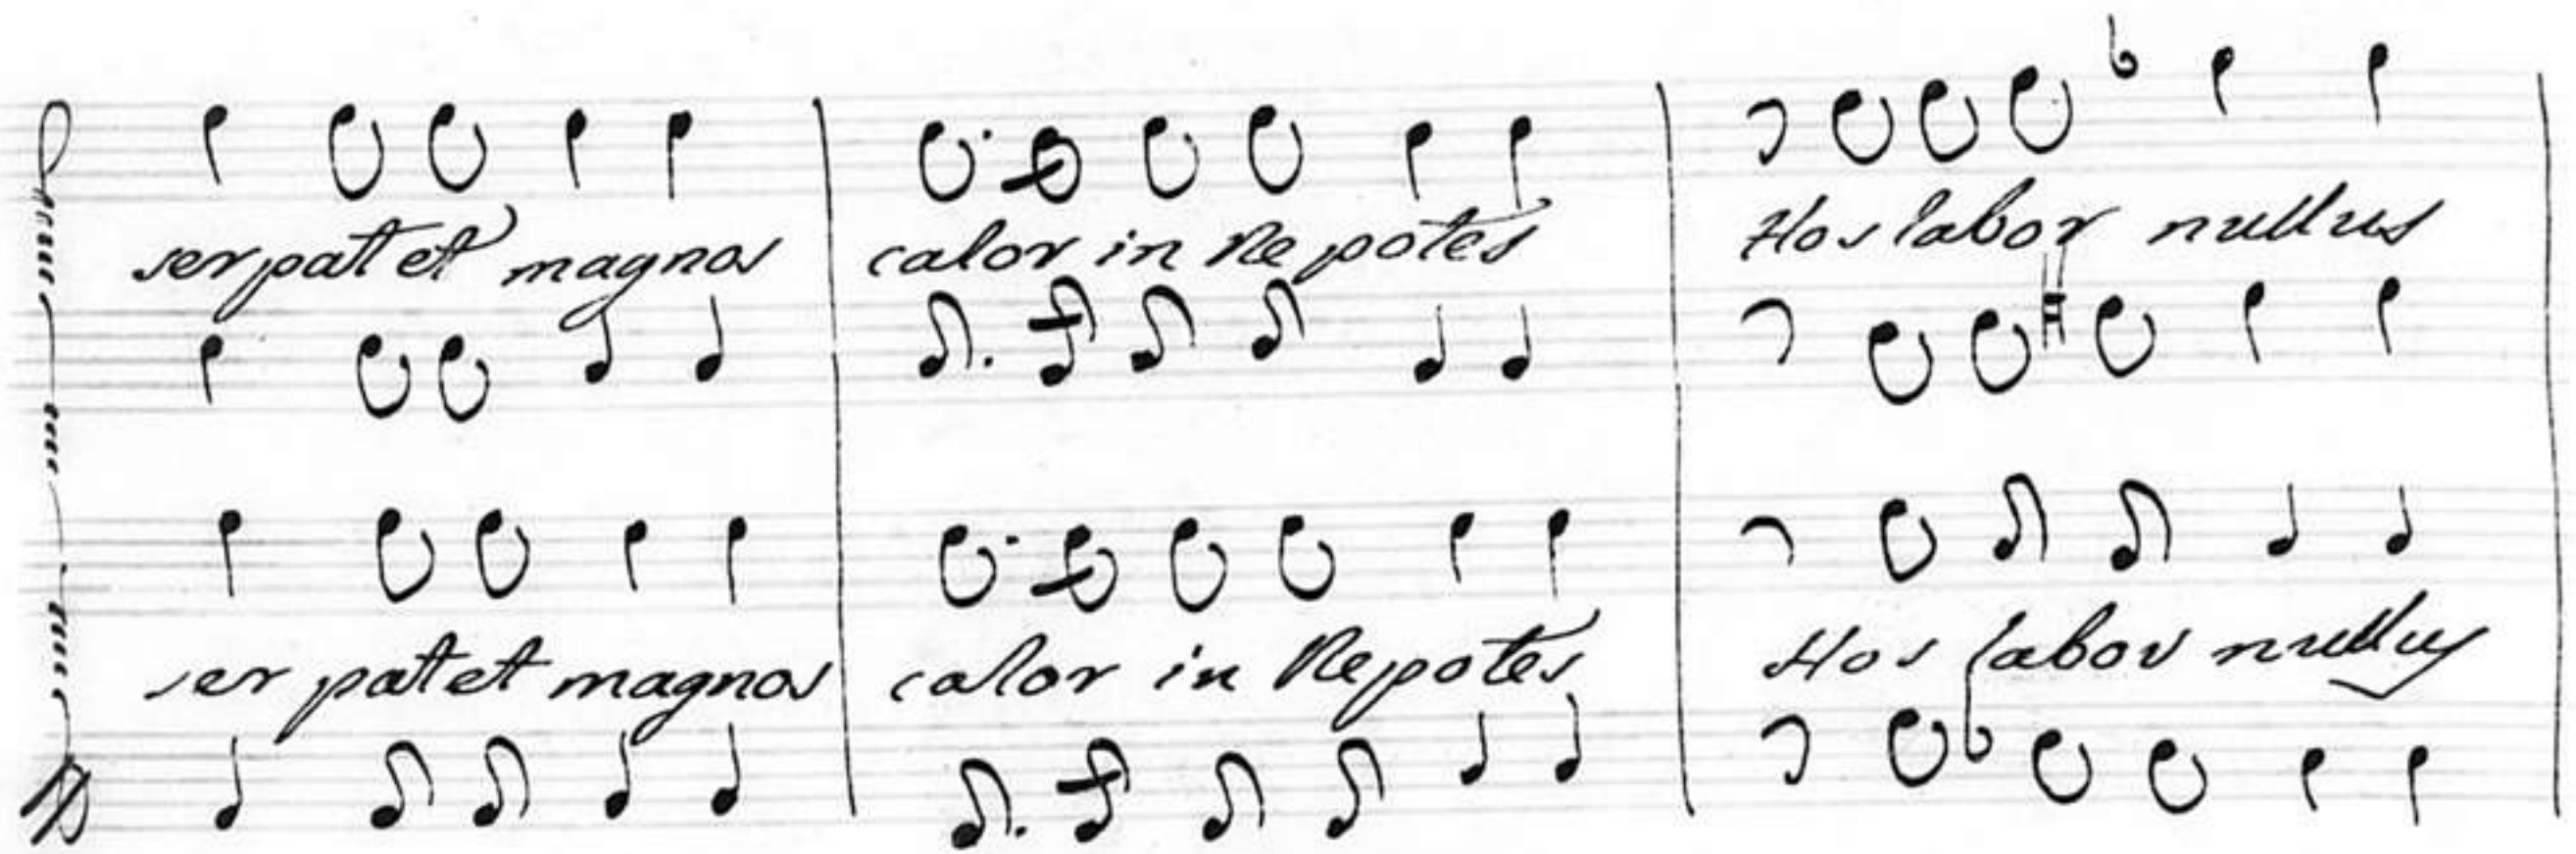 ser patet magnos calor in Nepotes Hos labor nullus
ser patet magnos calor in Nepotes Hos labor nullus